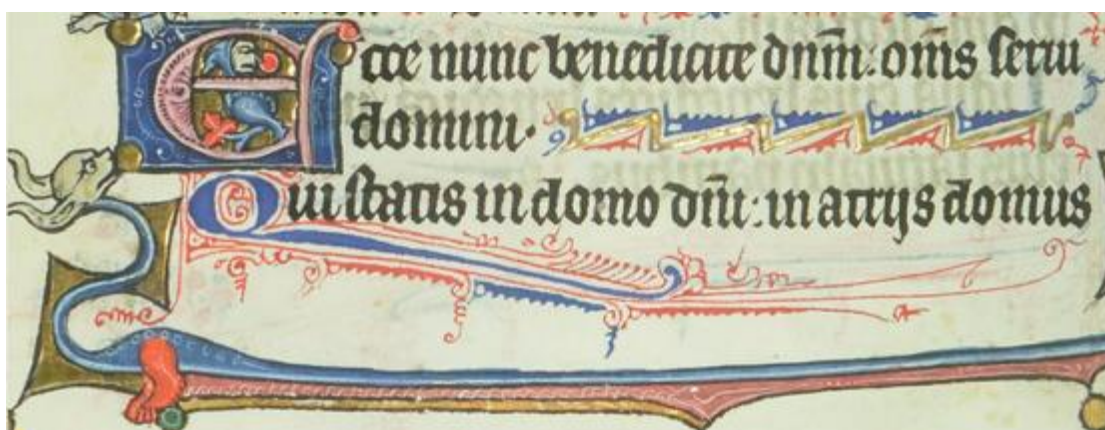 Ecce nunc benedicite dn̄m: om̄s serui
domini.
Qui statis in domo dn̄i: in atrijs domus